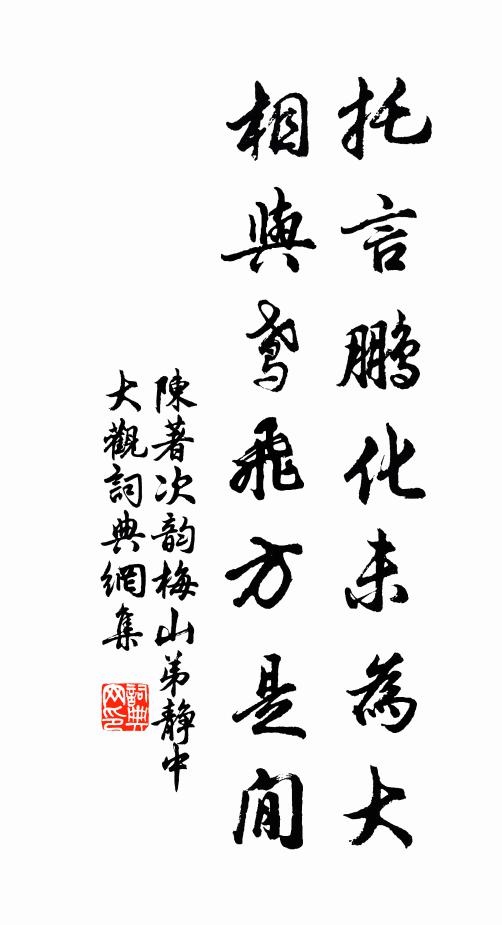 托言鵬化未為大
相與鸢飛方是閒
陳著次韵梅山弟静中
大觀詞典網集
詞典网印